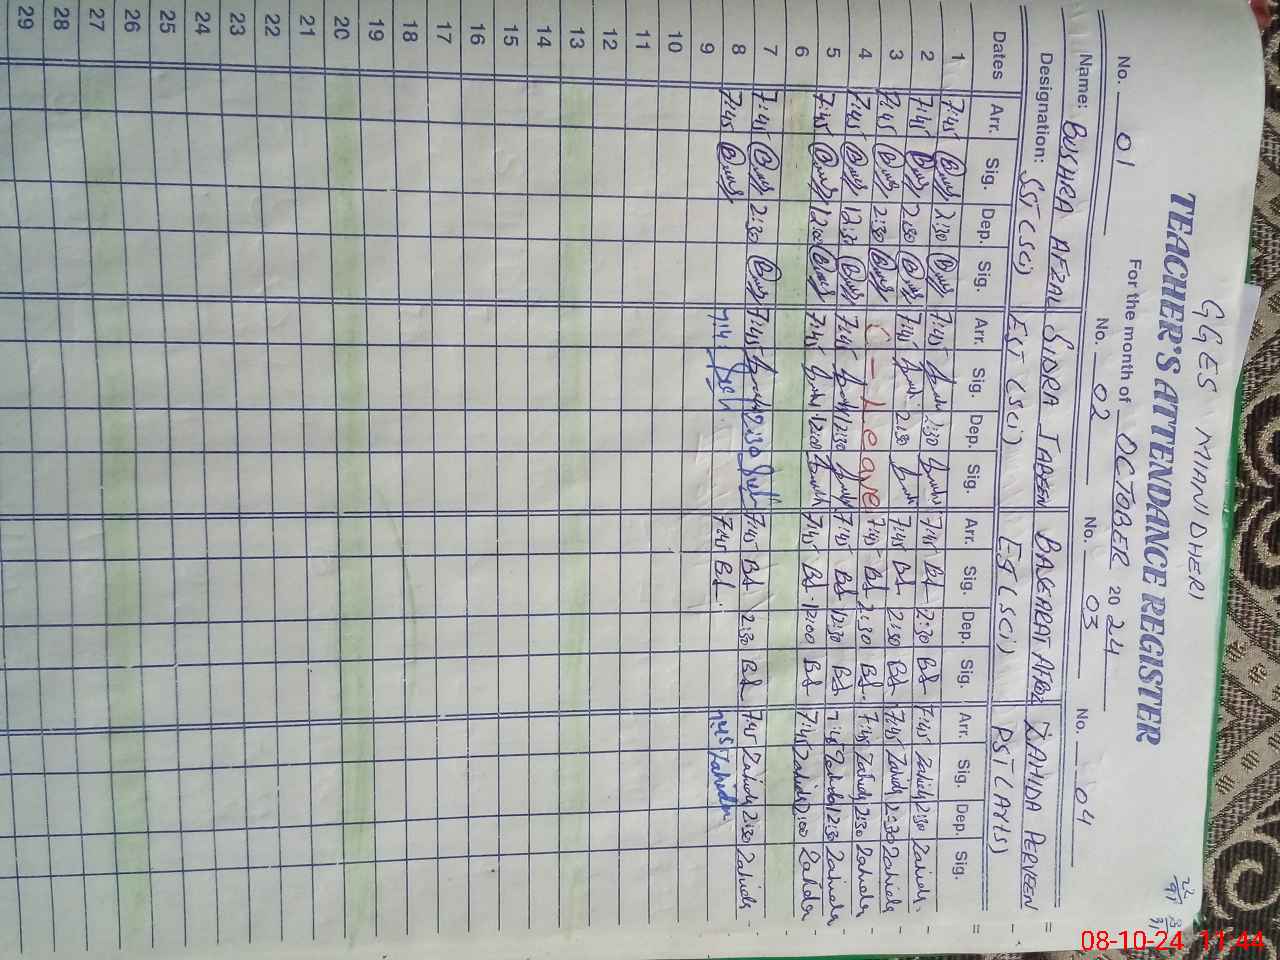 GGES MIANDHERI
TEACHER'S ATTENDANCE REGISTER
For the month of OCTOBER 2024
No. 01 No. 02 No. 03 No. 04
Name: BUSHRA AFZAL SIDRA JABEEN AFROZ ZAHIDA PERVEEN
Designation: SST (Sci) EST (Sci) EST (Sci) PST (Arts)
Dates Arr. Sig. Dep. Sig. Arr. Sig. Dep. Sig. Arr. Sig. Dep. Sig. Arr. Sig. Dep. Sig.
1 7:45 2:30 7:45 2:30 7:45 BA 2:30 BA 7:45 Zahida 2:30 Zahida
2 7:45 2:30 7:45 2:30 7:45 BA 2:30 BA 7:45 Zahida 2:30 Zahida
3 7:45 2:30 C - Leave 7:45 BA 2:30 BA 7:45 Zahida 2:30 Zahida
4 7:45 12:30 7:45 12:30 7:45 BA 12:30 BA 7:45 Zahida 12:30 Zahida
5 7:45 12:00 7:45 12:00 7:45 BA 12:00 BA 7:45 Zahida 12:00 Zahida
6
7 7:45 2:30 7:45 2:30 7:45 BA 2:30 BA 7:45 Zahida 2:30 Zahida
8 7:45 7:45 7:45 BA 7:45 Zahida
9
10
11
12
13
14
15
16
17
18
19
20
21
22
23
24
25
26
27
28
29
08-10-24 11:44